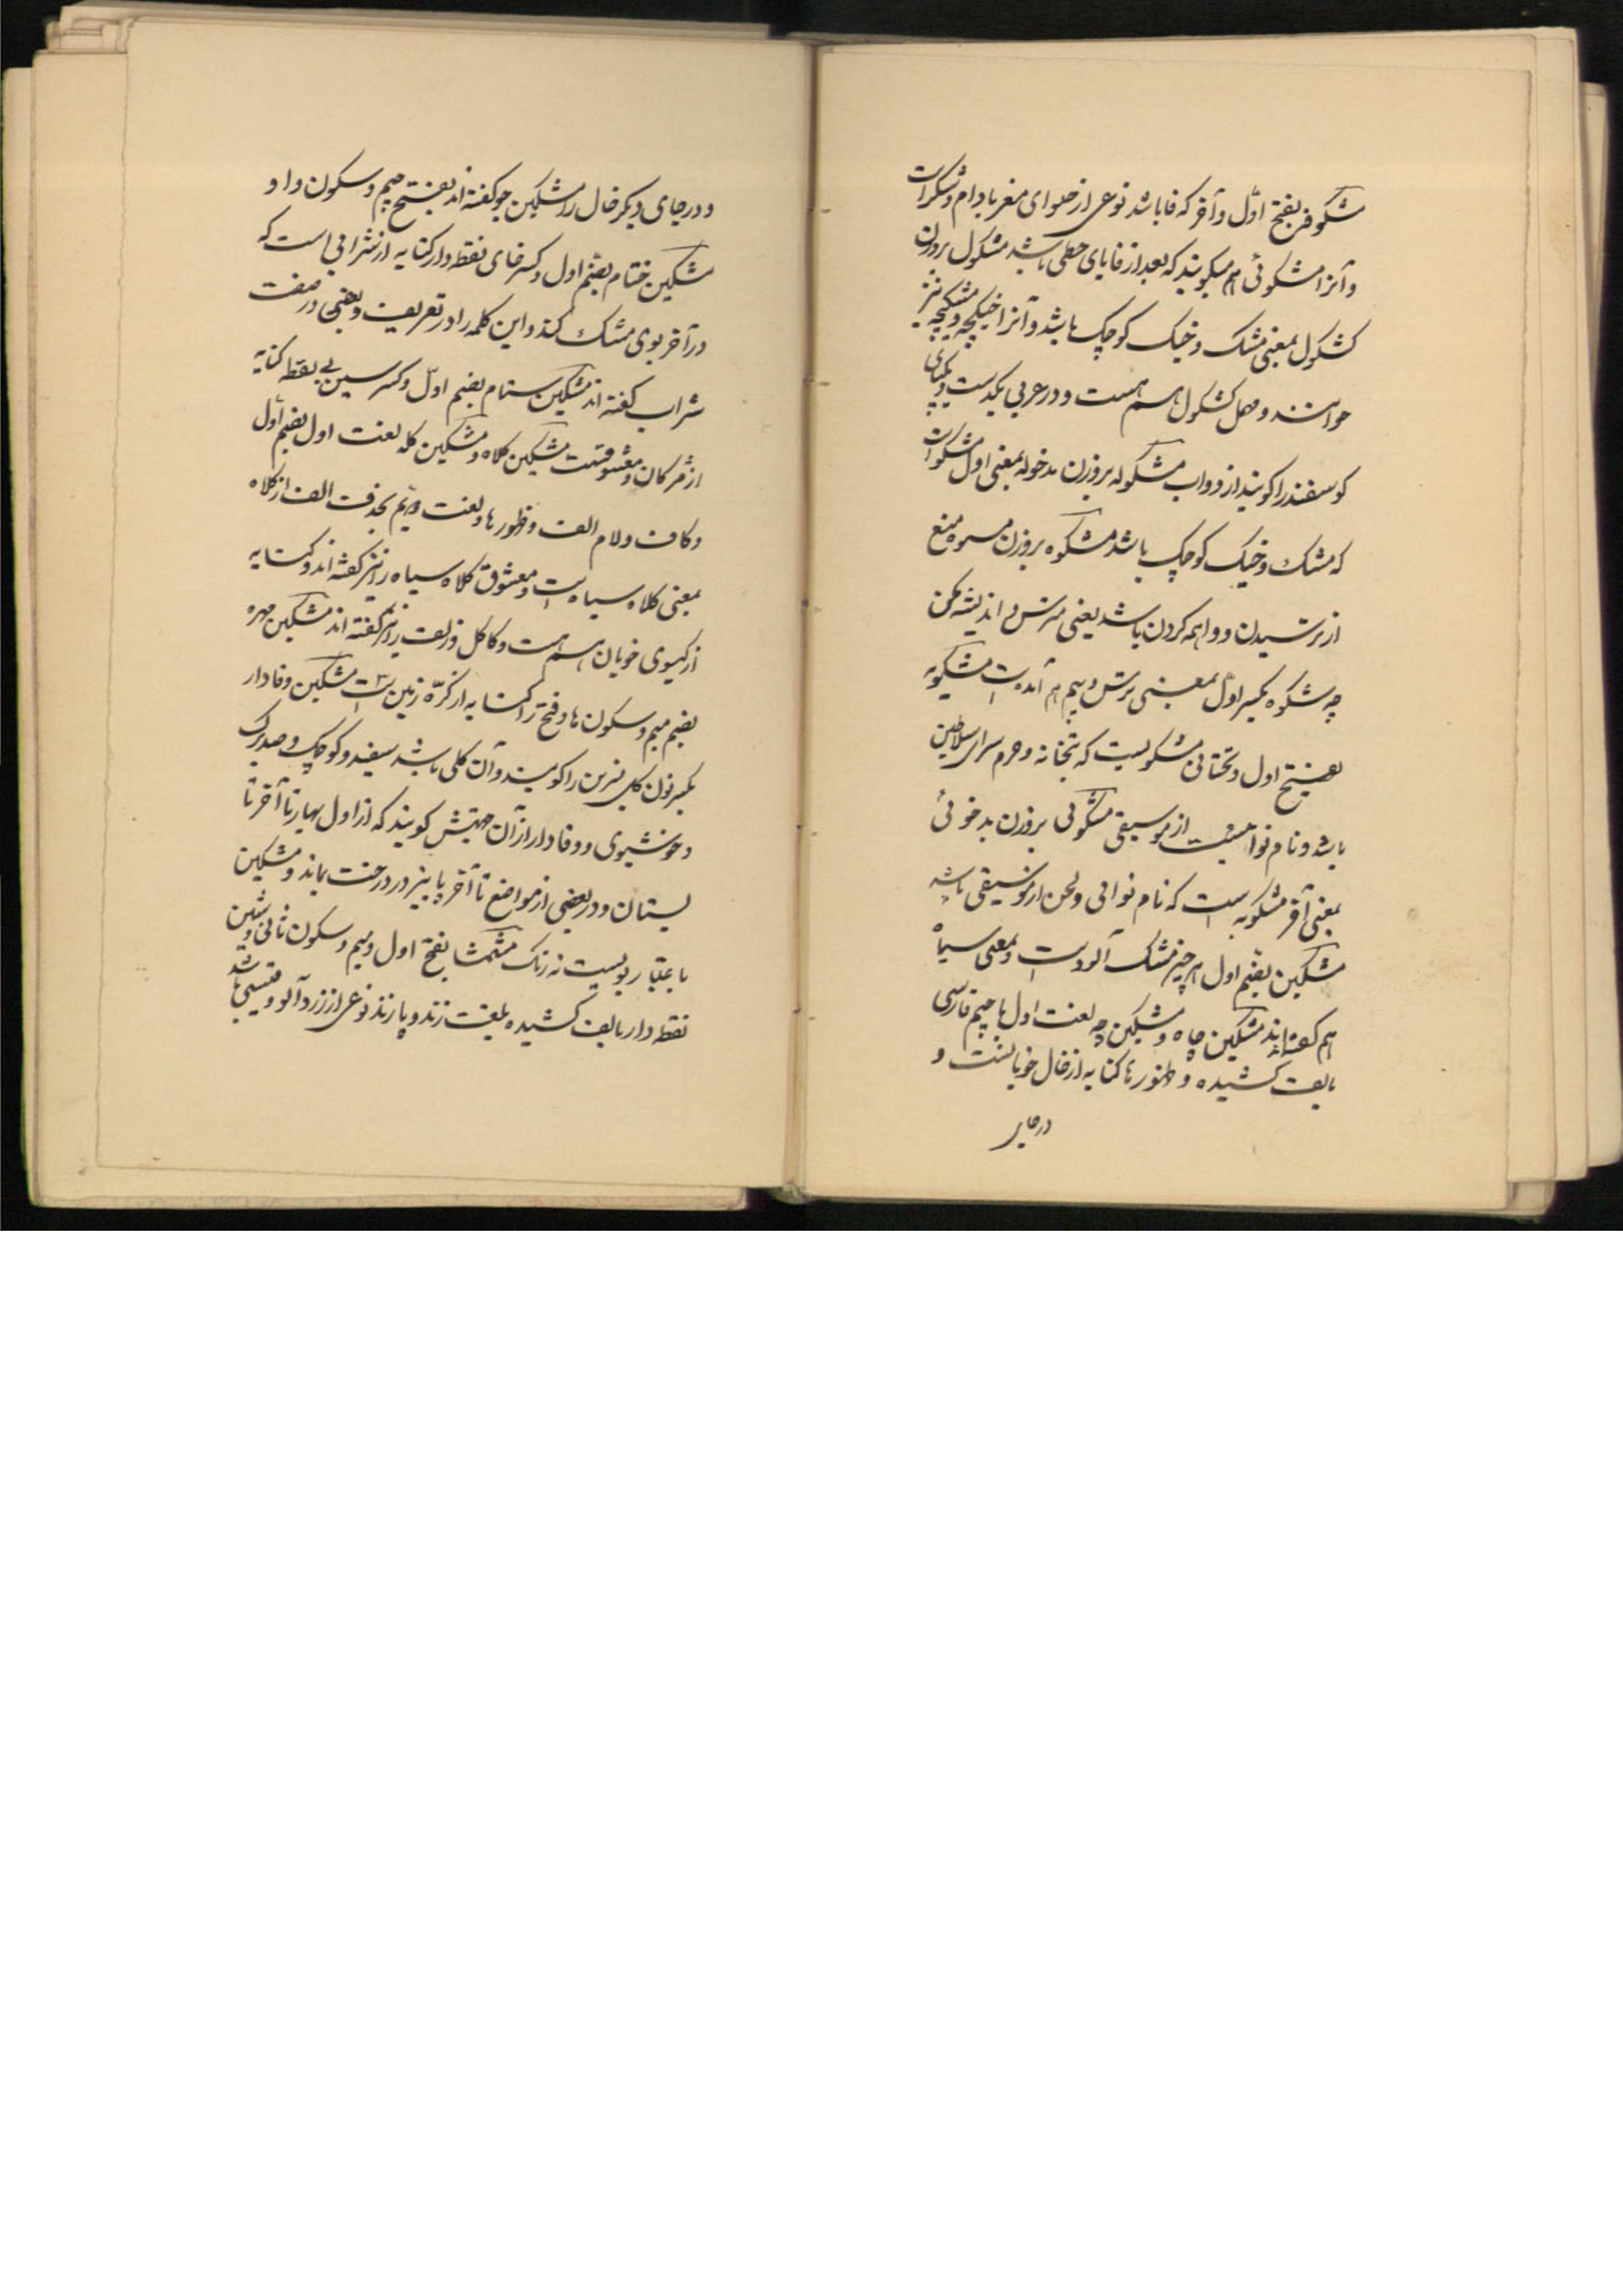 مشکوفن بفتح اول و آخر که فا باشد نوعی از حلوای مغز بادام و شکر است
و آنرا مشکوفی هم میکویند که بعد از فا یای حطی باشد مشکول بر وزن
کشکول بمعنی مشک و خیک کوچک باشد و آنرا خیکچه و مشکیچه نیز
خوانند و مهمل کشکول هم هست و در عربی یکدست و یکپای
کوسفند را کویند از دواب مشکوله بر وزن مدخوله بمعنی اول مشکول است
که مشک و خیک کوچک باشد مشکوه بر وزن منع
از ترسیدن و واهمه کردن باشد یعنی مترس و اندیشه مکن
چه شکوه بکسر اول بمعنی ترس و بیم هم آمده است مشکویه
بفتح اول و تحتانی مشکویست که بتخانه و حرم سرای سلاطین
باشد و نام نوائیست از موسیقی مشکوئی بر وزن بدخوئی
بمعنی آخر مشکویه است که نام نوائی و لحن از موسیقی باشد
مشکین بضم اول هر چیز مشک آلود است و بمعنی سیاه
هم کفته اند مشکین چاه و مشکین چه لغت اول با جیم فارسی
بالف کشیده و ظهور ها کنایه از خال خوبانست و
در جای
و در جای دیکر خال را مشکین جو کفته اند بفتح جیم و سکون واو
مشکین ختام بضم اول و کسر خای نقطه دار کنایه از شرابی است که
در آخر بوی مشک کند و این کلمه را در تعریف و بعضی در صفت
شراب کفته اند مشکین ستام بضم اول و کسر سین بی نقطه کنایه
از مژکان معشوقست مشکین کلاه و مشکین کله لغت اول بضم اول
و کاف و لام الف و ظهور ها و لغت دویم بحذف الف از کلاه
بمعنی کلاه سیاه است و معشوق کلاه سیاه را نیز کفته اند و کنایه
از کیسوی خوبان هم هست و کاکل و زلف را نیز کفته اند مشکین مهره
بضم میم و سکون ها و فتح را کنایه از کره زمین است مشکین وفادار
بکسر نون کل نسرین را کویند و آن کلی باشد سفید و کوچک و صدبرک
و خوشبوی و وفادار از آن جهتش کویند که از اول بهار تا آخر تا
بستان و در بعضی از مواضع تا آخر پاییز در درخت بماند و مشکین
باعتبار بویست نه رنک مشمشا بفتح اول و میم و سکون ثانی و شین
نقطه دار بالف کشیده بلغت زند و پازند نوعی از زردآلو و قیسی باشد